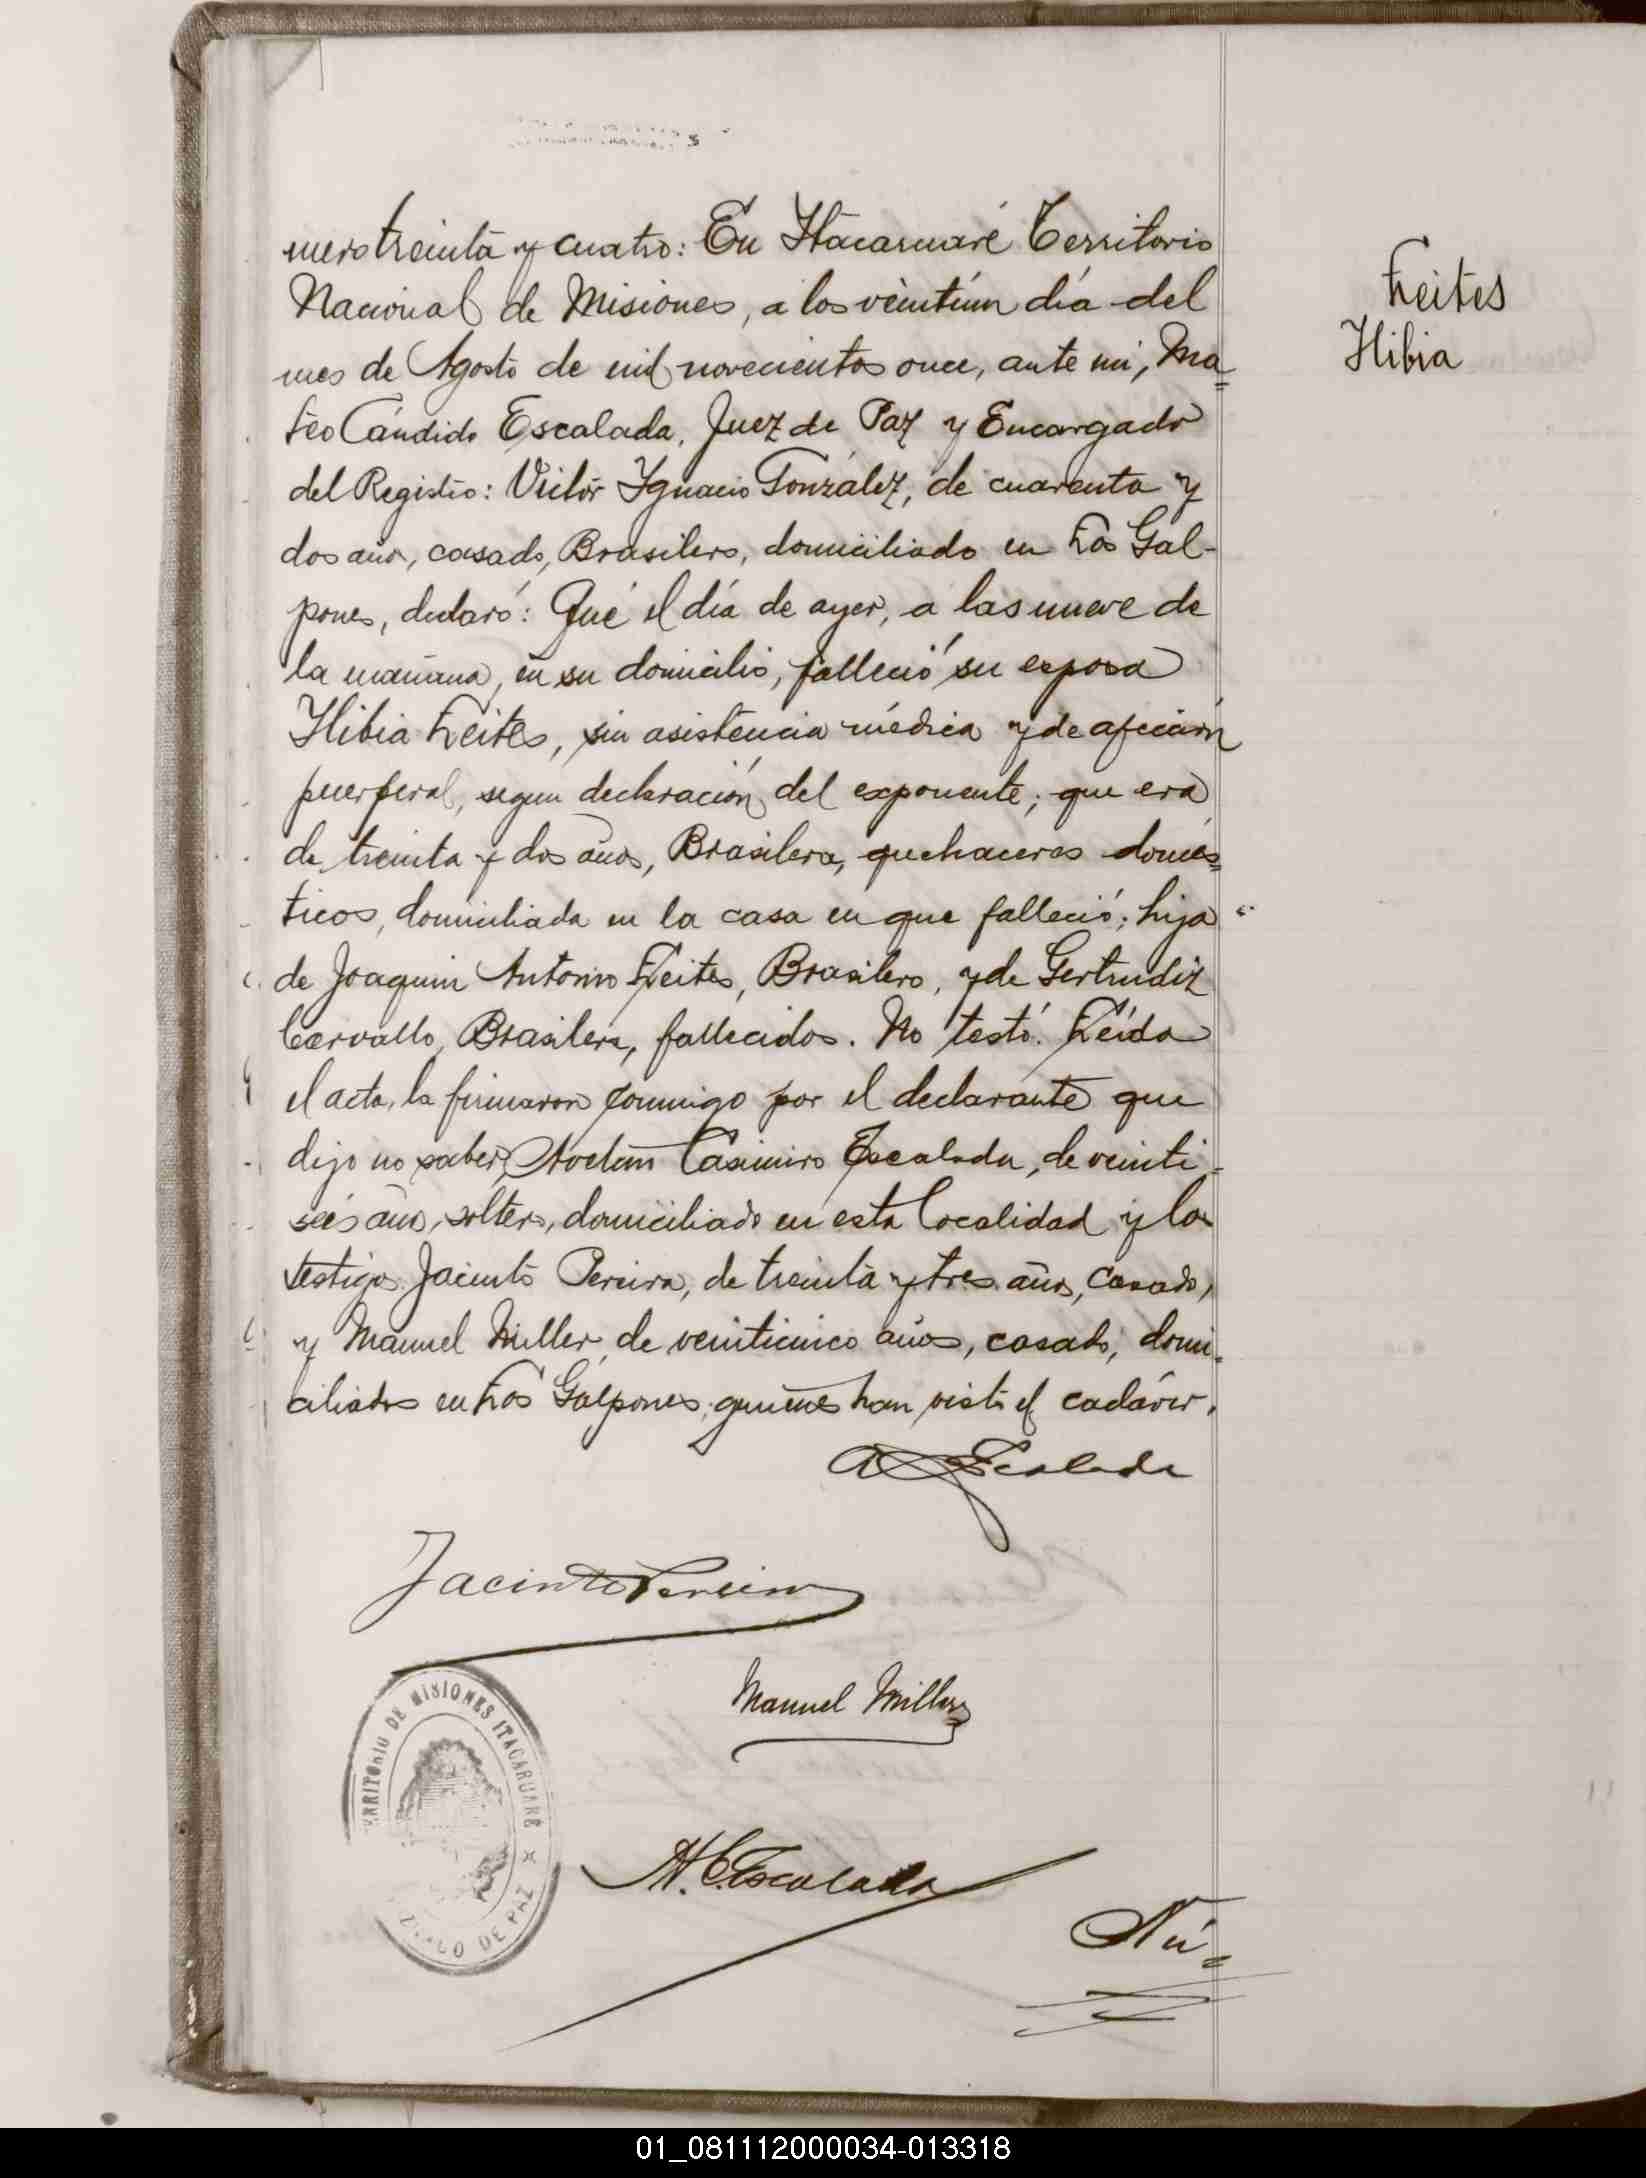 mero treinta y cuatro: En Itacaruaré Territorio
Nacional de Misiones, a los veintiun día del
mes de Agosto de mil novecientos once, ante mi, Ma=
teo Cándido Escalada, Juez de Paz y Encargado
del Registro: Victor Ygnacio González, de cuarenta y
dos años, casado, Brasilero, domiciliado en Los Gal-
pones, declaró: Que el día de ayer, a las nueve de
la mañana, en su domicilio, falleció su esposa
Hibia Leites, sin asistencia médica y de afección
puerperal, segun declaración del exponente; que era
de treinta y dos años, Brasilera, quehaceres domés=
ticos, domiciliada en la casa en que falleció; hija
de Joaquin Antonio Leites, Brasilero, y de Gertrudiz
Carvallo, Brasilera, fallecidos. No testó. Leída
el acta, la firmaron conmigo por el declarante que
dijo no saber, Casimiro Escalada, de veinti-
seis años, soltero, domiciliado en esta localidad y los
testigos Jacinto Pereira, de treinta y tres años, casado,
y Manuel Miller, de veinticinco años, casado, domi-
ciliados en Los Galpones, quienes han visto el cadáver.
Escalada
Jacinto Pereira
Manuel Miller
TERRITORIO DE MISIONES ITACARUARE
JUZGADO DE PAZ
M. C. Escalada
Nú=
Leites
Hibia
01_081112000034-013318